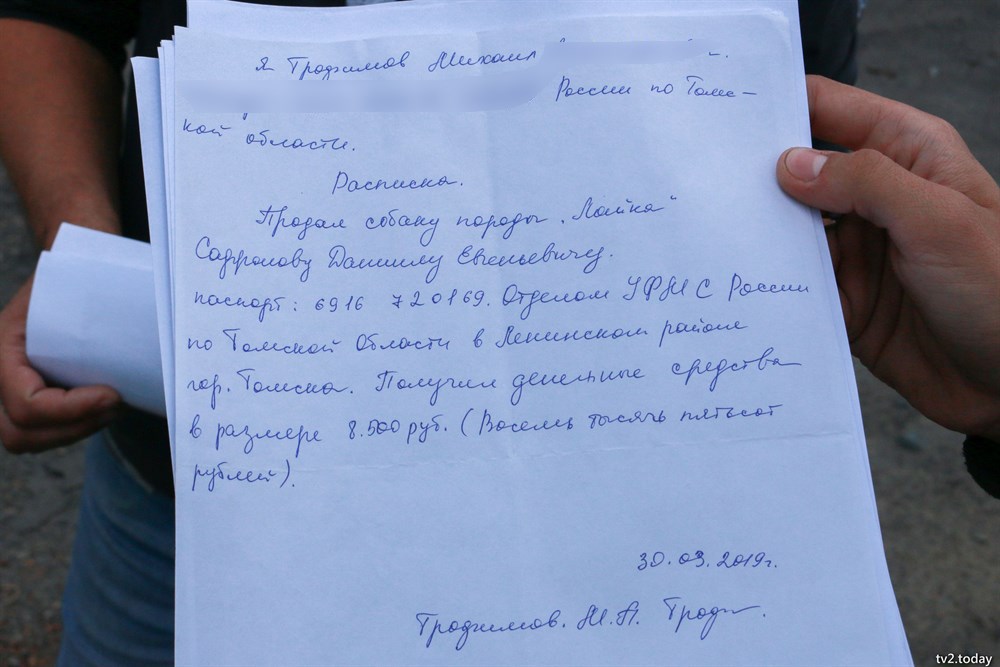 Я Трофимов Михаил
России по Томс-
кой области.
Расписка.
Продал собаку породы „Лайка"
Сафронову Данилу Евгеньевичу.
паспорт: 6916 720169. Отделом УФМС России
по Томской Области в Ленинском районе
гор. Томска. Получил денежные средства
в размере 8.500 руб. (Восемь тысячь пятьсот
рублей).
30.03.2019г.
Трофимов. М.А. Троф
tv2.today